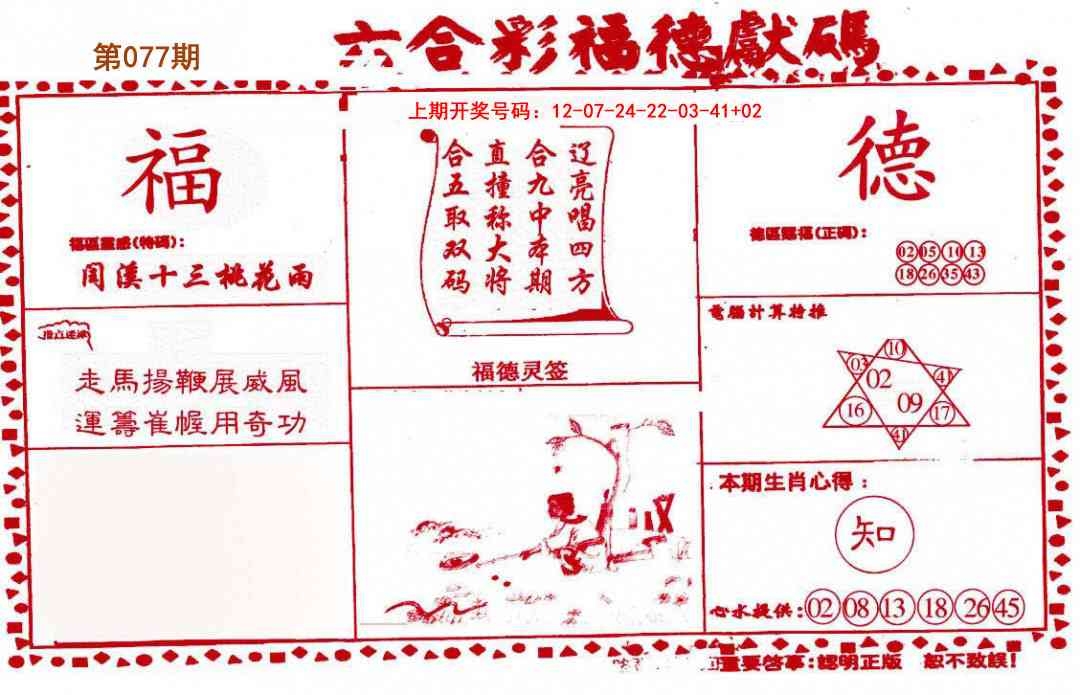 六合彩福德獻碼
第077期
上期开奖号码：12-07-24-22-03-41+02
福
福區靈感(特碼)：
闰溪十三桃花雨
走馬揚鞭展威風
運籌崔幄用奇功
辽亮唱四方
合九中本期
直撞称大将
合五取双码
福德灵签
德
德區賜福(正碼)：
02 05 10 13
18 26 35 43
電腦計算特推
10
03
02
41
16
09
17
41
本期生肖心得：
知
心水提供：02 08 13 18 26 45
重要啓事：認明正版 恕不致誤！